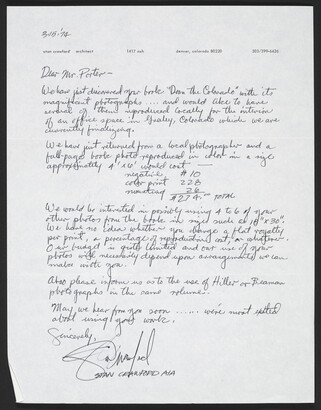 3·15·'72
stan crawford architect 1417 oak denver, colorado 80220 303/399-6626
Dear Mr. Porter —
We have just discovered your book "Down the Colorado" with its
magnificent photographs .... and would like to have
several of them reproduced locally for the interior
of an office space in Greeley, Colorado which we are
currently finalizing.
We have just returned from a local photographer and a
full-page book photo reproduced in color in a size
approximately 4' x 6' would cost —
negative $10
color print 228
mounting
TOTAL
We would be interested in possibly using 4 to 6 of your
other photos from the book in sizes such as
We have no idea whether you charge a flat royalty
per print, a percentage of reproduction cost, or whatever.
Our budget is quite limited and our use of your
photos will necessarily depend upon arrangements we can
make with you.
Also please inform us as to the use of Hiller or Beaman
photographs in the same volume.
May we hear from you soon ...... we're most excited
about using your work.
Sincerely,
STAN CRAWFORD AIA